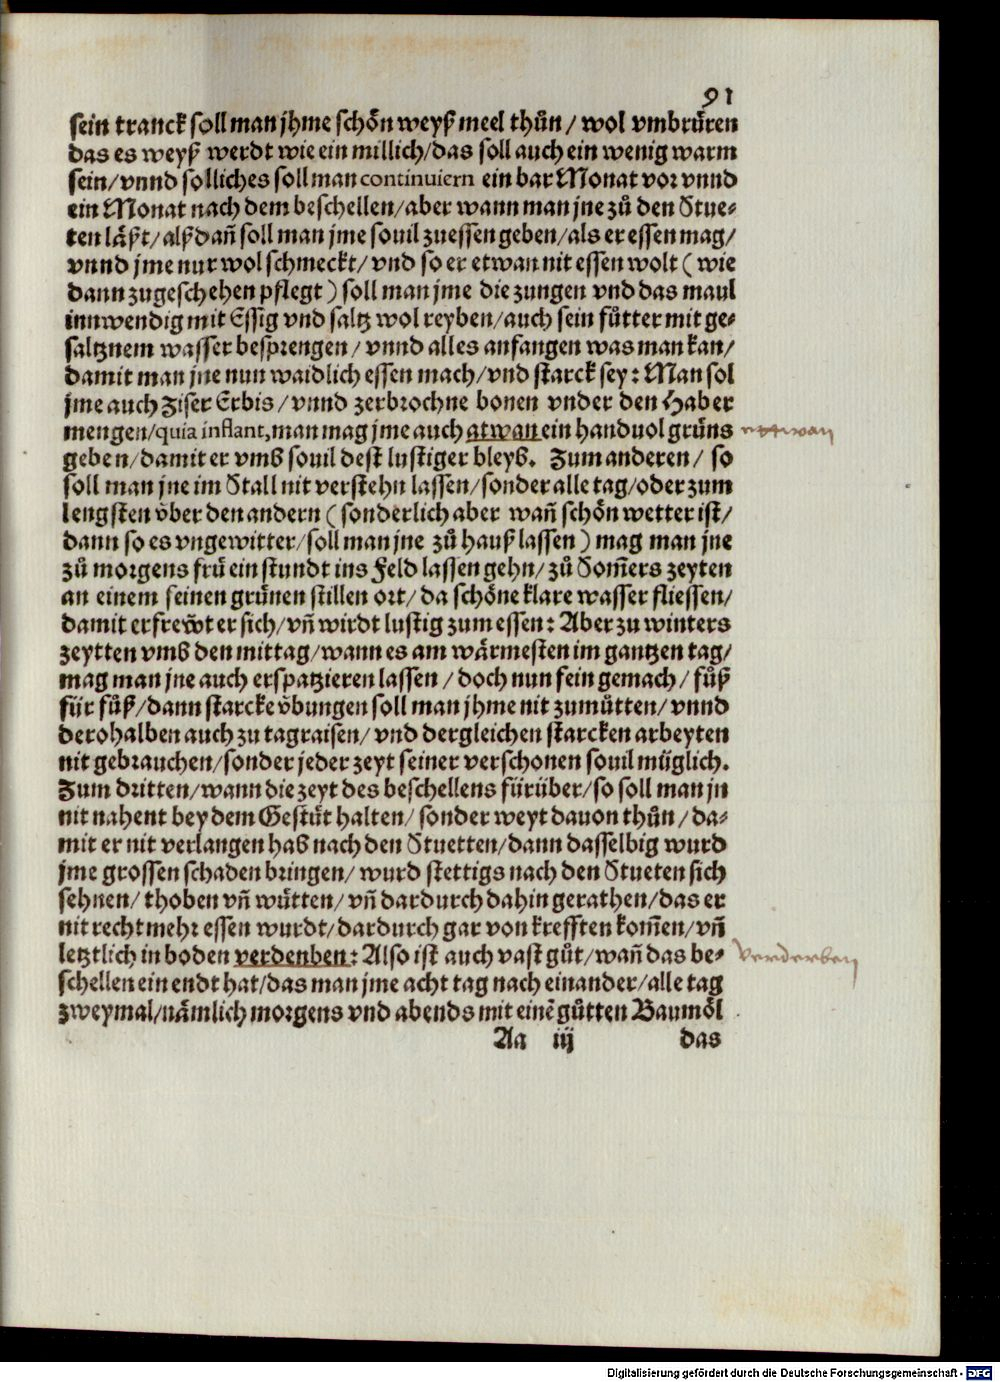 91
sein tranck soll man jhme schön weyß meel thůn / wol vmbrüren
das es weyß werdt wie ein millich/das soll auch ein wenig warm
sein/vnnd solliches soll man continuiern ein bar Monat vor vnnd
ein Monat nach dem beschellen/aber wann man jne zů den Stue-
ten läßt/alßdañ soll man jme souil zuessen geben/als er essen mag/
vnnd jme nur wol schmeckt/vnd so er etwan nit essen wolt (wie
dann zugeschehen pflegt) soll man jme die zungen vnd das maul
innwendig mit Essig vnd saltz wol reyben/auch sein fütter mit ge-
saltznem wasser besprengen / vnnd alles anfangen was man kan/
damit man jne nun waidlich essen mach/vnd starck sey: Man sol
jme auch Ziser Erbis / vnnd zerbrochne bonen vnder den Haber
mengen/quia inflant, man mag jme auch atwan ein handuol gröns
ettwan
geben/damit er vmb souil dest lustiger bleyb. Zum anderen / so
soll man jne im Stall nit verstehn lassen/sonder alle tag/oder zum
lengsten vber den andern (sonderlich aber wañ schön wetter ist/
dann so es vngewitter/soll man jne zů hauß lassen) mag man jne
zů morgens frü ein stundt ins Feld lassen gehn/zů Som̃ers zeyten
an einem seinen grünen stillen ort/da schöne klare wasser fliessen/
damit erfrewt er sich/vñ wirdt lustig zum essen: Aber zu winters
zeytten vmb den mittag/wann es am wärmesten im gantzen tag/
mag man jne auch erspatzieren lassen / doch nun fein gemach / fůß
für fůß/dann starcke vbungen soll man jhme nit zumůtten/vnnd
derohalben auch zu tagraisen/vnd dergleichen starcken arbeyten
nit gebrauchen/sonder jeder zeyt seiner verschonen souil müglich.
Zum dritten/wann die zeyt des beschellens fürüber/so soll man jn
nit nahent bey dem Gestüt halten/sonder weyt dauon thůn / da-
mit er nit verlangen hab nach den Stuetten/dann dasselbig wurd
jme grossen schaden bringen/wurd stettigs nach den Stueten sich
sehnen/thoben vñ wütten/vñ dardurch dahin gerathen/das er
nit recht mehr essen wurdt/dardurch gar von krefften kom̃en/vñ
letztlich in boden verdenben: Also ist auch vast gůt/wañ das be-
verderben
schellen ein endt hat/das man jme acht tag nach einander/alle tag
zweymal/nämlich morgens vnd abends mit einē gůtten Baumöl
Aa iij das
Digitalisierung gefördert durch die Deutsche Forschungsgemeinschaft - DFG